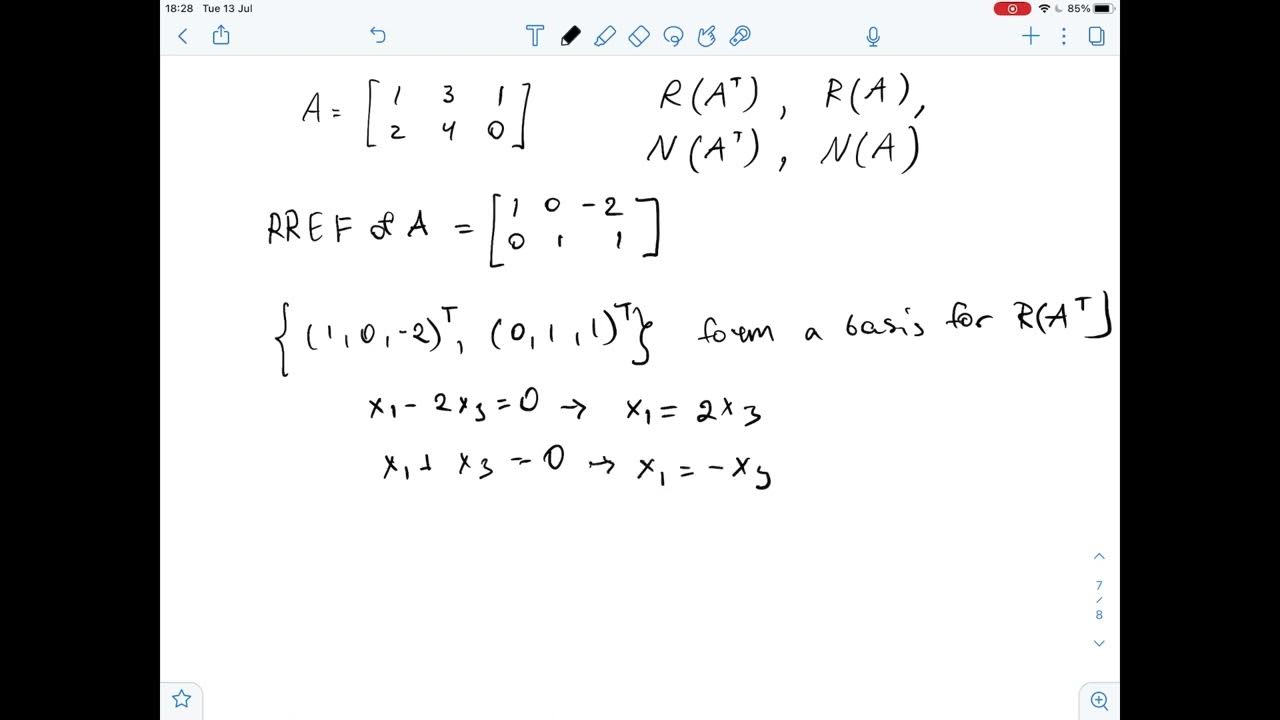 18:28 Tue 13 Jul 85%
A = [ 1 3 1 R(Aᵀ), R(A),
2 4 0 ] N(Aᵀ), N(A)
RREF of A = [ 1 0 -2
0 1 1 ]
{(1,0,-2)ᵀ, (0,1,1)ᵀ} form a basis for R(Aᵀ)
x₁ - 2x₃ = 0 → x₁ = 2x₃
x₁ + x₃ = 0 → x₁ = -x₃
7
/
8